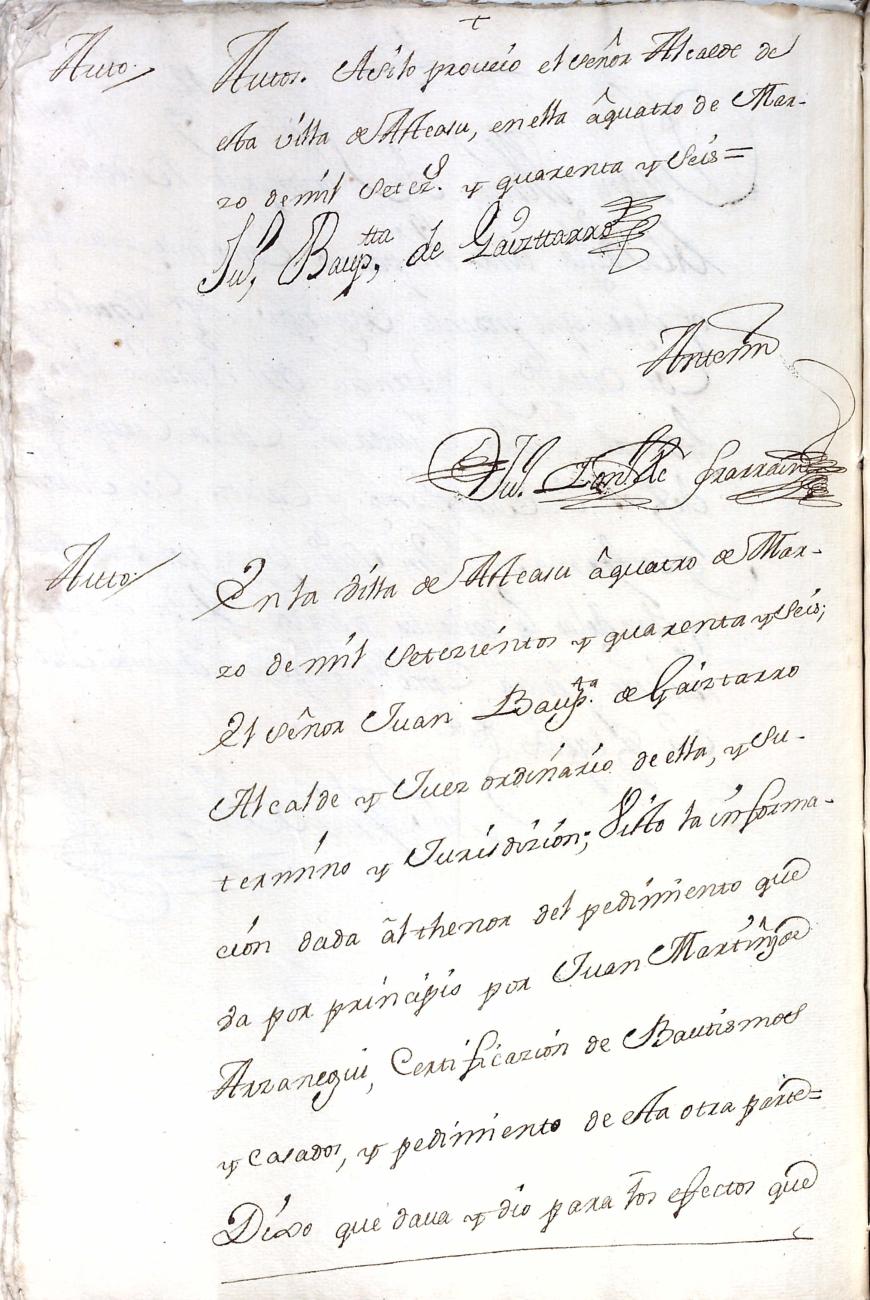 +
Auto.
Autos. Asilo proveio el señor Alcalde de
esta villa de Asteasu, en ella â quatro de Mar-
zo de mil setez.s y quarenta y seis=
Ju.n Baup.tta de Gaizttarro
Antemi
Ju.n de Yrarrain
Auto.
En la villa de Asteasu â quatro de Mar-
zo de mil setezientos y quarenta y seis;
El señor Juan Baup.ta de Gaiztarro
Alcalde y Juez ordinario de ella, y su
termino y Jurisdizion; Visto la informa-
cion dada âl thenor del pedimiento que
da por principio por Juan Martin de
Arzanegui, Certificazion de Bautismos
y casados, y pedimiento de esta otra parte=
Dixo que dava y dio para los efectos que